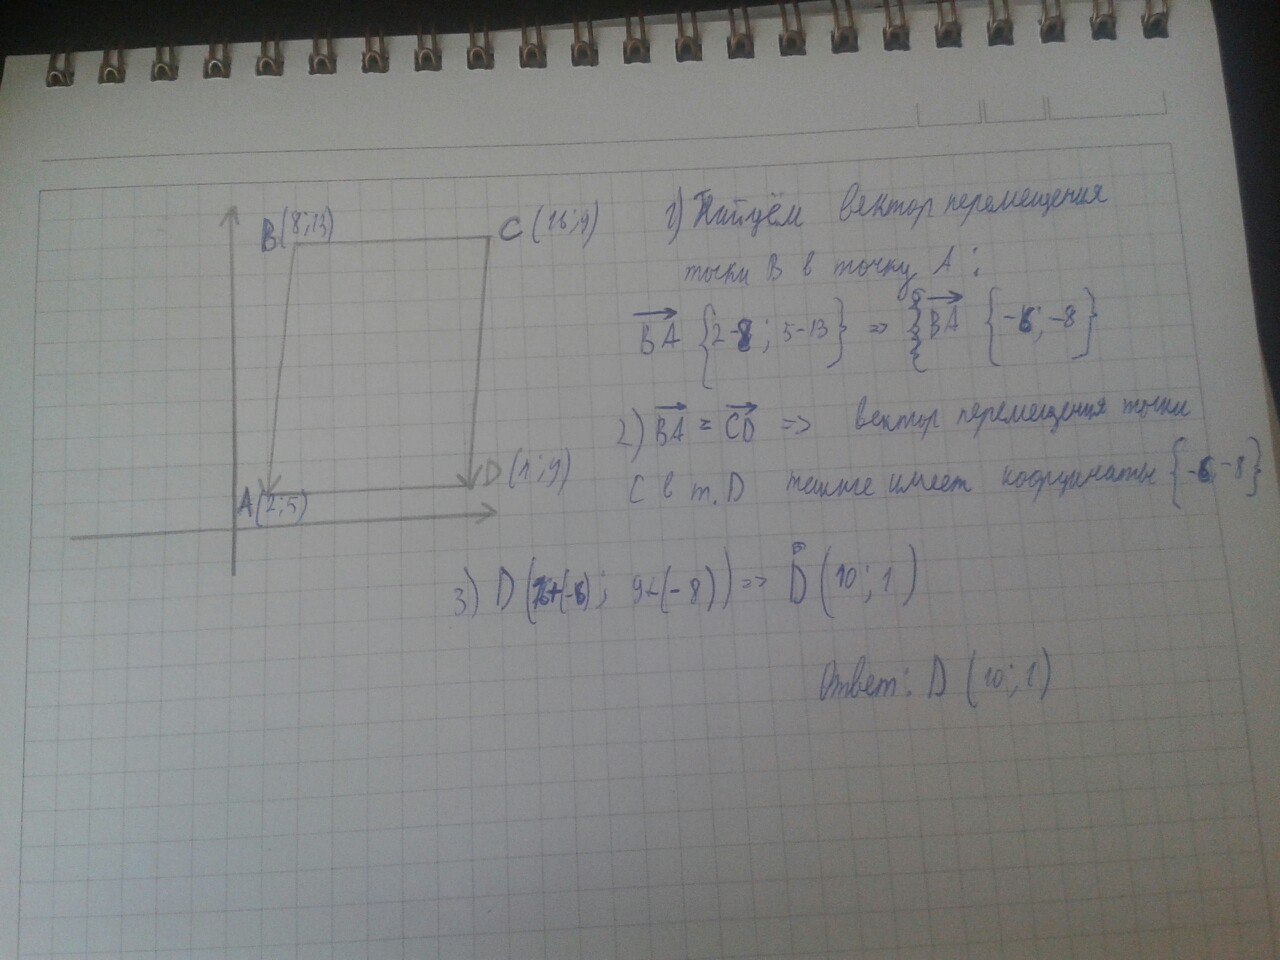 B(8;13)
C (16;9)
A(2;5)
D (1;9)
1) Найдём вектор перемещения
точки B в точку A:
BA {2-8; 5-13} => BA {-6; -8}
2) BA = CD => вектор перемещения точки
C в т. D также имеет координаты {-6;-8}
3) D(16+(-6); 9+(-8)) => D (10; 1)
Ответ: D (10; 1)